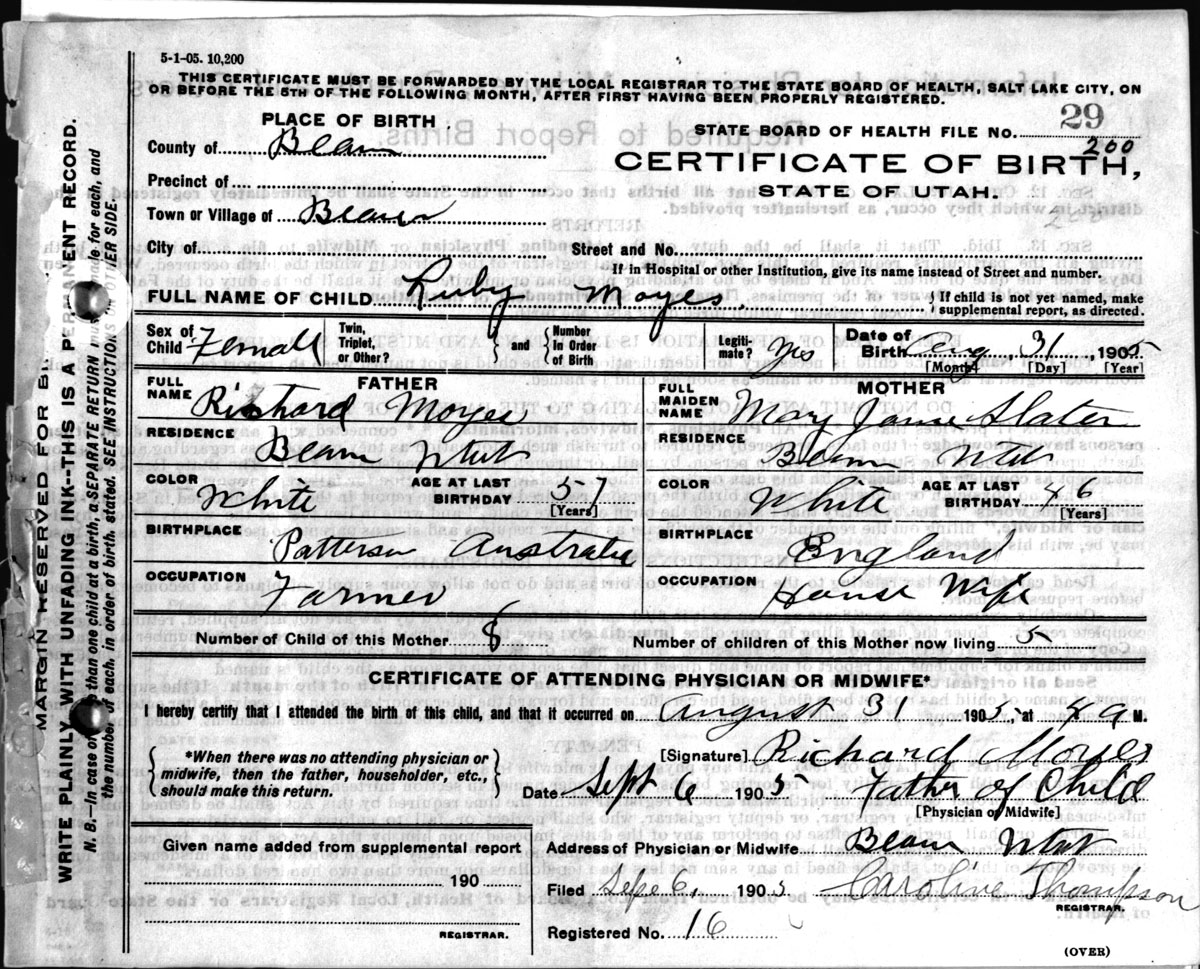 5-1-05. 10,200
THIS CERTIFICATE MUST BE FORWARDED BY THE LOCAL REGISTRAR TO THE STATE BOARD OF HEALTH, SALT LAKE CITY, ON
OR BEFORE THE 5TH OF THE FOLLOWING MONTH, AFTER FIRST HAVING BEEN PROPERLY REGISTERED.
PLACE OF BIRTH
STATE BOARD OF HEALTH FILE NO. 29
200
CERTIFICATE OF BIRTH,
STATE OF UTAH.
County of
Precinct of
Town or Village of
City of
Street and No.
If in Hospital or other Institution, give its name instead of Street and number.
FULL NAME OF CHILD Ruby Moyes { If child is not yet named, make
supplemental report, as directed.
Sex of Child Female
Twin, Triplet, or Other? } and { Number in Order of Birth
Legitimate? Yes
Date of Birth Aug 31, 1905
[Month] [Day] [Year]
FATHER
FULL NAME Richard Moyes
RESIDENCE
COLOR White
AGE AT LAST BIRTHDAY 57
[Years]
BIRTHPLACE Australia
OCCUPATION Farmer
MOTHER
FULL MAIDEN NAME Mary Jane Slater
RESIDENCE
COLOR White
AGE AT LAST BIRTHDAY 46
[Years]
BIRTHPLACE England
OCCUPATION House Wife
Number of Child of this Mother 8
Number of children of this Mother now living 5
CERTIFICATE OF ATTENDING PHYSICIAN OR MIDWIFE*
I hereby certify that I attended the birth of this child, and that it occurred on August 31 1905, at 4 a M.
{ *When there was no attending physician or
midwife, then the father, householder, etc.,
should make this return. }
[Signature] Richard Moyes
Date Sept 6 1905 Father of Child
[Physician or Midwife]
Given name added from supplemental report
190
REGISTRAR.
Address of Physician or Midwife
Filed Sept 6, 1905 Caroline Thompson
REGISTRAR.
Registered No. 16
(OVER)
MARGIN RESERVED FOR
WRITE PLAINLY WITH UNFADING INK--THIS IS A PERMANENT RECORD.
N. B.—In case of more than one child at a birth, a SEPARATE RETURN must be made for each, and
the number of each, in order of birth, stated. SEE INSTRUCTIONS ON OTHER SIDE.